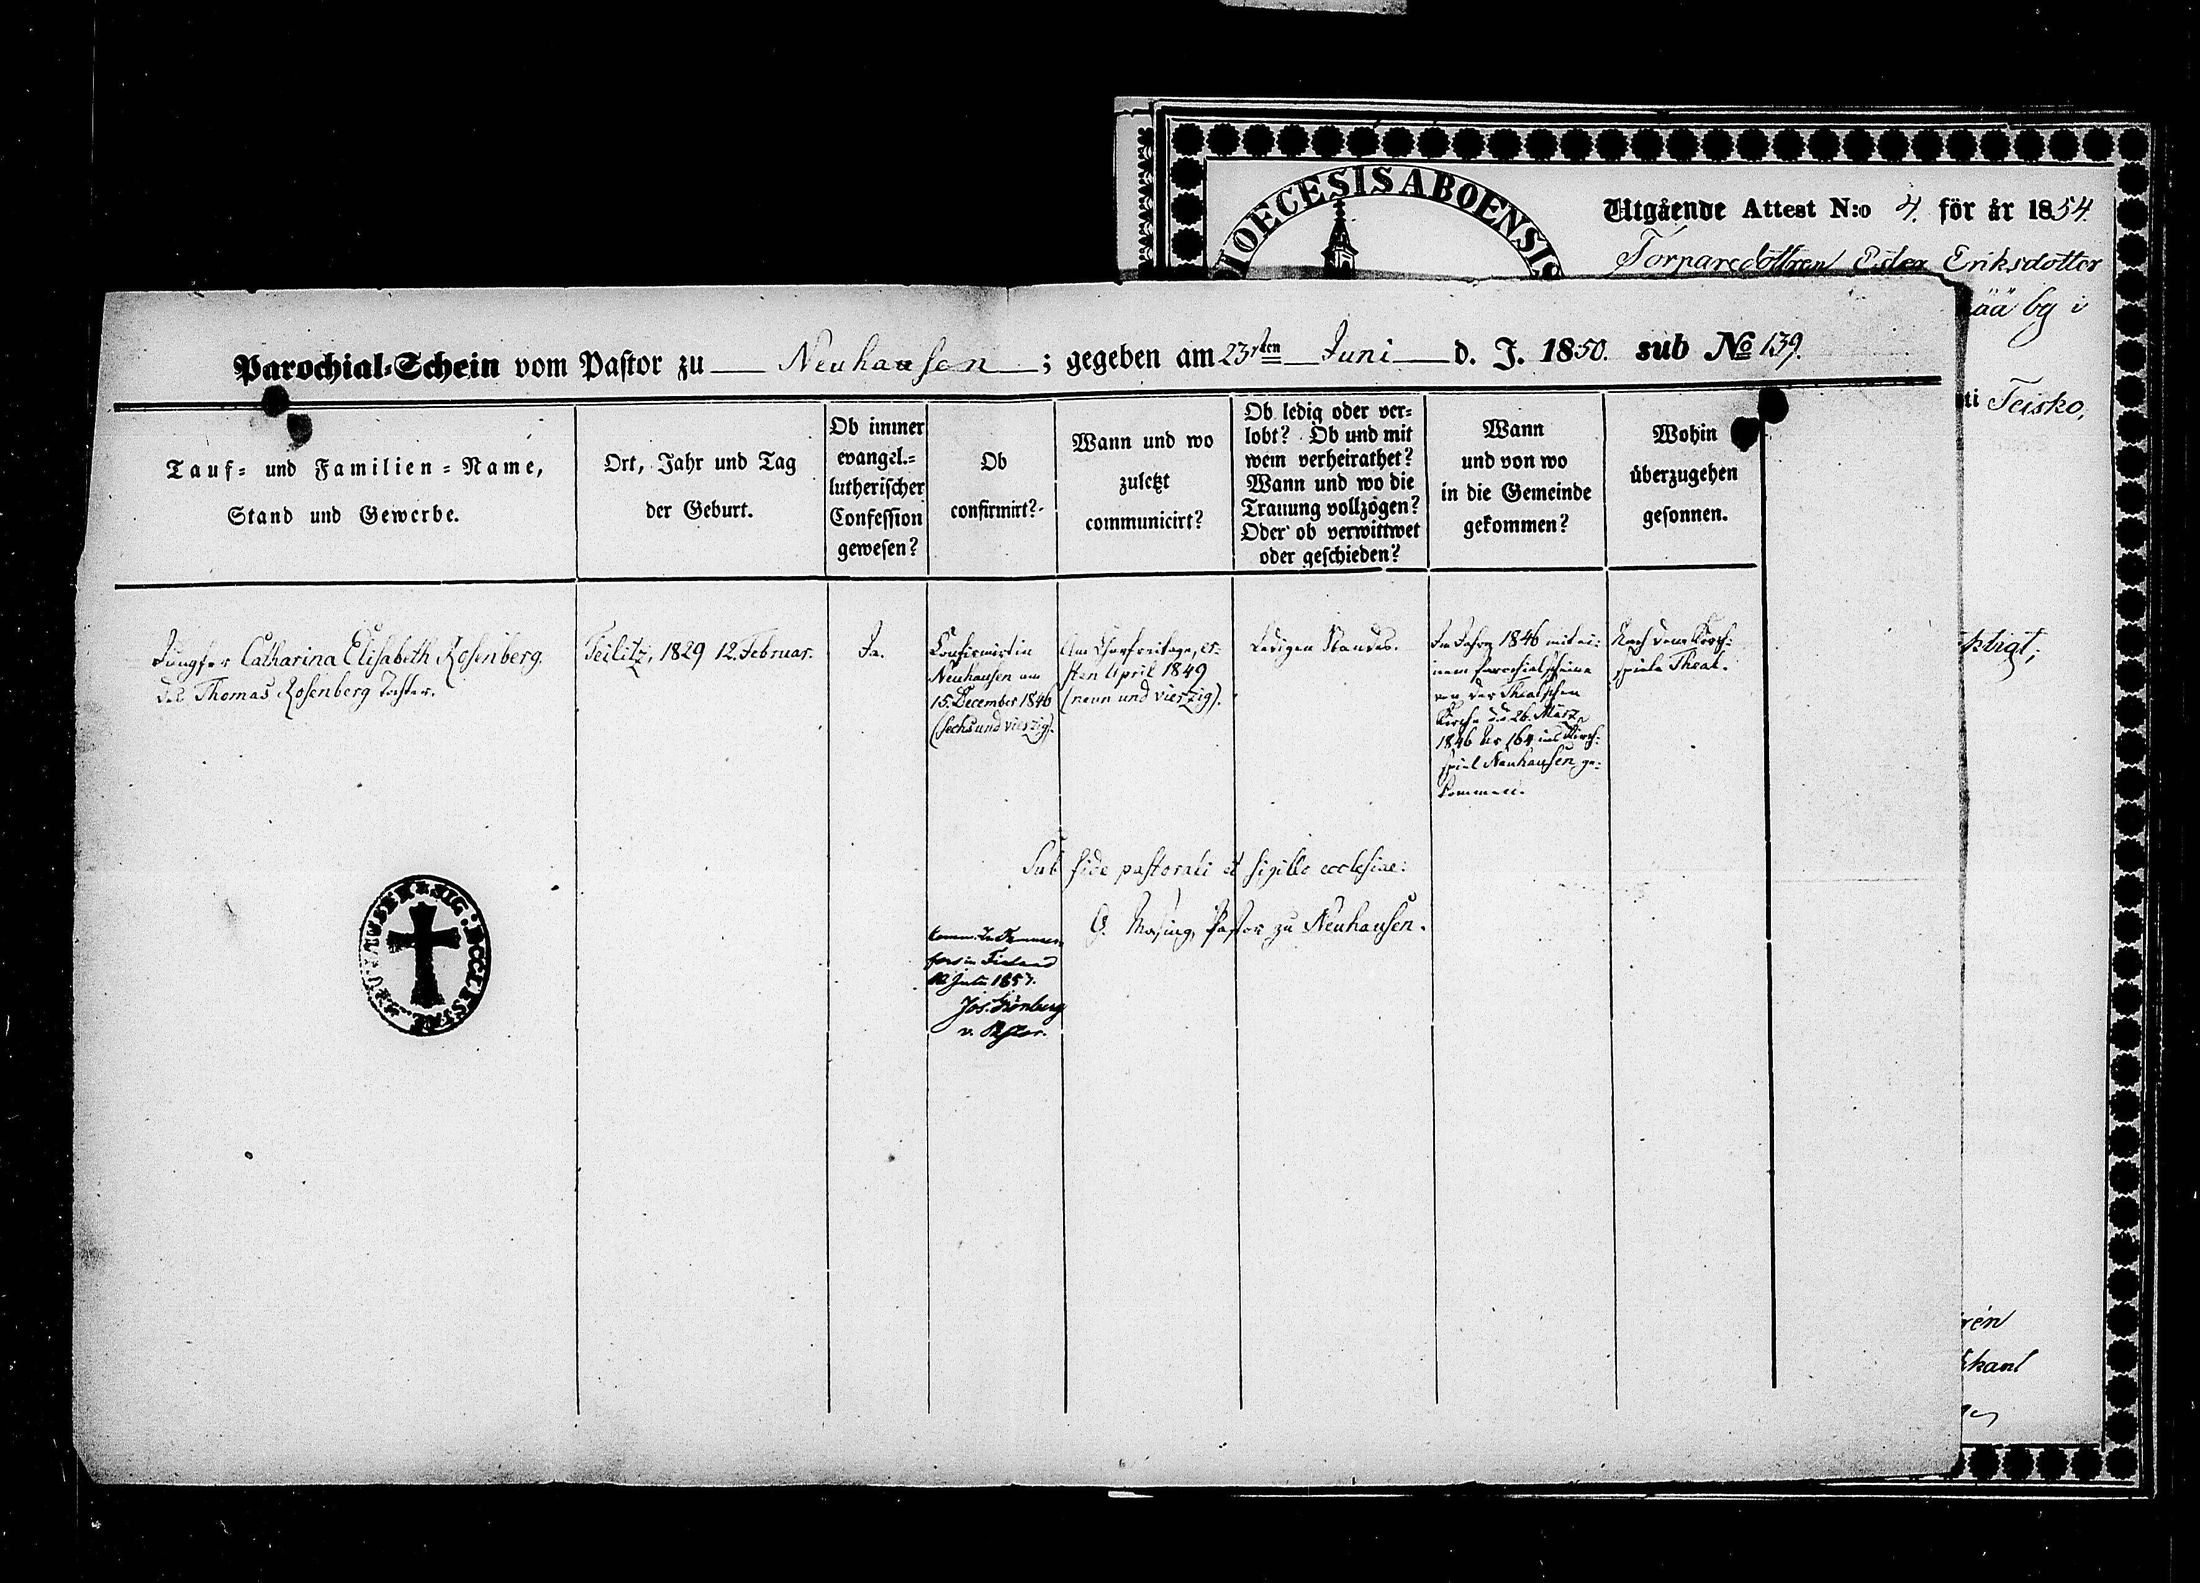 DIOECESIS ABOENSIS
Utgående Attest N:o 4. för år 1854.
Torparedottren Ester Eriksdotter
ää by i
ti Teisko,
Parochial-Schein vom Pastor zu Neuhausen; gegeben am 23sten Juni d. J. 1850. sub No 139.
Tauf- und Familien-Name,
Stand und Gewerbe.
Ort, Jahr und Tag
der Geburt.
Ob immer
evangel.-
lutherischer
Confession
gewesen?
Ob
confirmirt?
Wann und wo
zuletzt
communicirt?
Ob ledig oder ver-
lobt? Ob und mit
wem verheirathet?
Wann und wo die
Trauung vollzogen?
Oder ob verwittwet
oder geschieden?
Wann
und von wo
in die Gemeinde
gekommen?
Wohin
überzugehen
gesonnen.
Jungfer Catharina Elisabeth Rosenberg.
des Thomas Rosenberg Tochter.
Teilitz, 1829 12. Februar.
Ja.
Confirmirt in
Neuhausen am
15. December 1846
(sechs und vierzig).
Am Charfreitage, er-
sten April 1849
(neun und vierzig).
Ledigen Standes.
Im Jahre 1846 mit ei-
nem Parochialscheine
von der Theal'schen
Kirche d.d. 26. März
1846 No 164 ins Kirch-
spiel Neuhausen ge-
kommen.
Nach dem Kirch-
spiele Theal.
Sub fide pastorali et sigillo ecclesiae:
G. Masing, Pastor zu Neuhausen.
fors in Finland
1857.
Jos. Grönberg
v. Pastor.
SIG. ECCLESIAE NEUHAUSEN